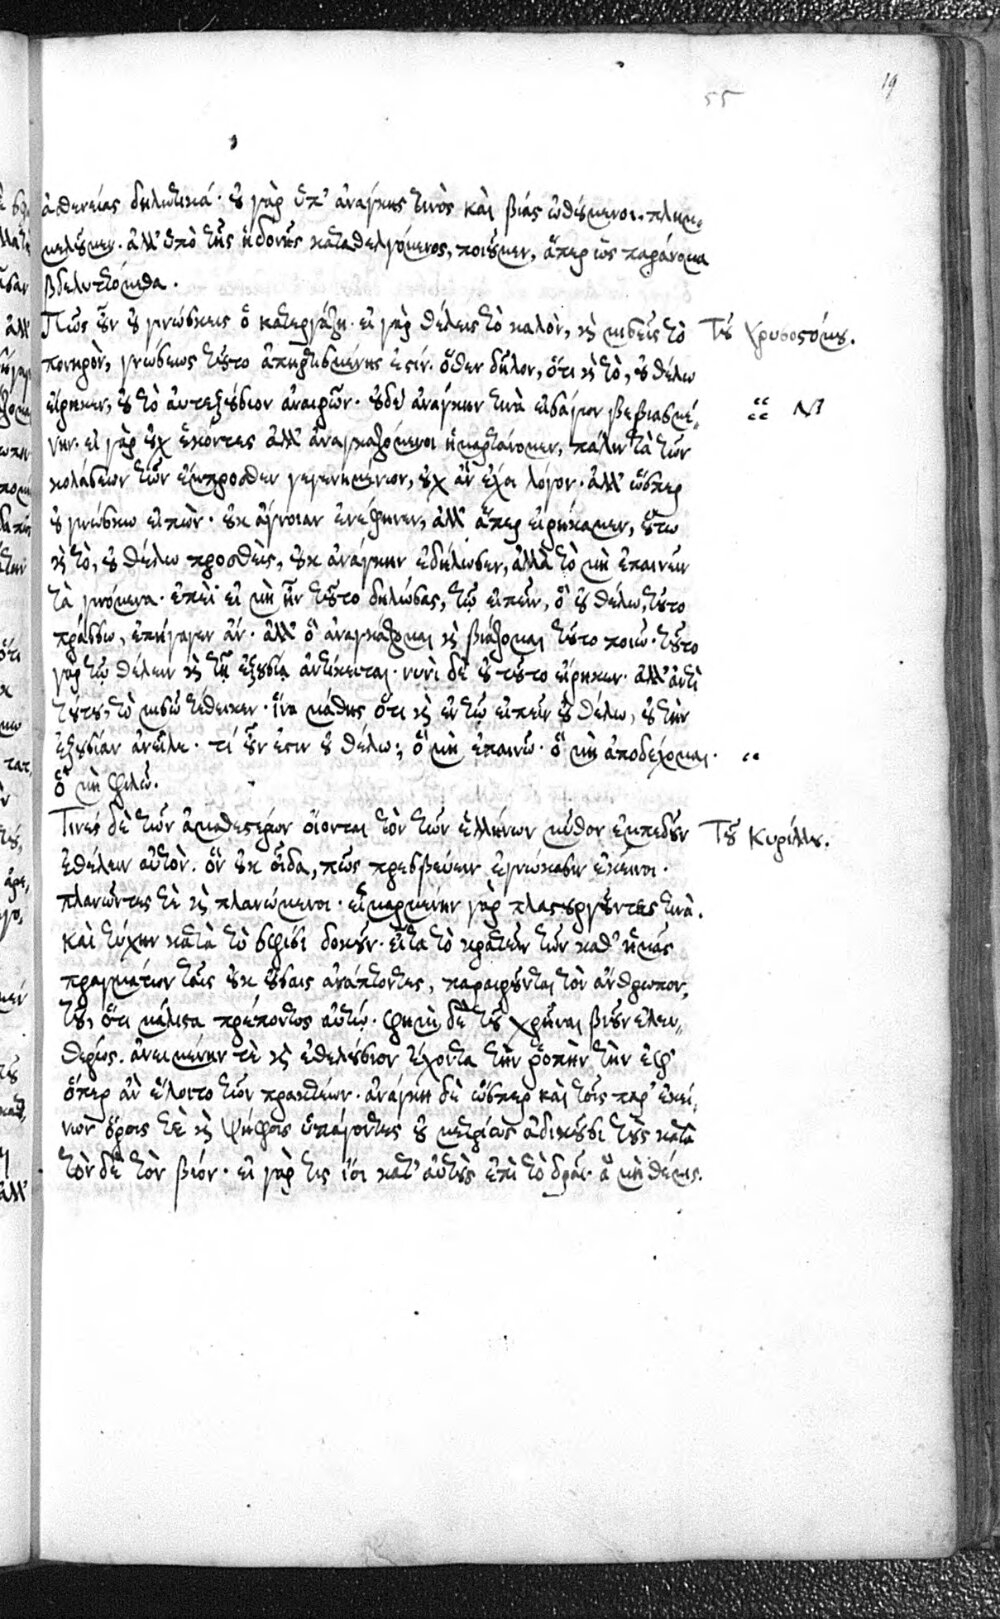 19
55
ἀσθενείας δηλωτικά· οὐ γὰρ ὑπ' ἀνάγκης τινὸς καὶ βίας ὠθούμενοι πλημ-
μελοῦμεν· ἀλλ' ὑπὸ τῆς ἡδονῆς καταθελγόμενος, ποιοῦμεν, ἅπερ ὡς παράνομα
βδελυττόμεθα.
Πῶς οὖν οὐ γινώσκεις ὃ κατεργάζῃ· εἰ γὰρ θέλεις τὸ καλὸν, καὶ μισεῖς τὸ Τοῦ Χρυσοστόμου.
πονηρὸν, γνώσεως τοῦτο ἀπηρτισμένης ἐστίν· ὅθεν δῆλον, ὅτι καὶ τὸ, οὐ θέλω
εἴρηκεν, οὐ τὸ αὐτεξούσιον ἀναιρῶν· οὐδὲ ἀνάγκην τινὰ εἰσάγων βεβιασμέ-
νην· εἰ γὰρ οὐχ ἑκόντες ἀλλ' ἀναγκαζόμενοι ἡμαρτάνομεν, πάλιν τὰ τῶν
κολάσεων τῶν ἔμπροσθεν γεγενημένων, οὐχ ἂν ἔχοι λόγον· ἀλλ' ὥσπερ
οὐ γινώσκω εἰπὼν· οὐκ ἄγνοιαν ἐνέφηνεν, ἀλλ' ἅπερ εἰρήκαμεν, οὕτω
καὶ τὸ, οὐ θέλω προσθεὶς, οὐκ ἀνάγκην ἐδήλωσεν, ἀλλὰ τὸ μὴ ἐπαινεῖν
τὰ γινόμενα· ἐπεὶ εἰ μὴ ἦν τοῦτο δηλώσας, τῷ εἰπεῖν, ὃ οὐ θέλω, τοῦτο
πράσσω, ἐπήγαγεν ἄν· ἀλλ' ὃ ἀναγκάζομαι καὶ βιάζομαι τοῦτο ποιῶ· τοῦτο
γὰρ τῷ θέλειν καὶ τῇ ἐξουσίᾳ ἀντίκειται· νυνὶ δὲ οὐ τοῦτο εἴρηκεν· ἀλλ' ἀντὶ
τούτου, τὸ μισῶ τέθεικεν· ἵνα μάθῃς ὅτι καὶ ἐν τῷ εἰπεῖν οὐ θέλω, οὐ τὴν
ἐξουσίαν ἀνεῖλε· τί οὖν ἐστιν οὐ θέλω; ὃ μὴ ἐπαινῶ· ὃ μὴ ἀποδέχομαι·
ὃ μὴ φιλῶ.
Τινὲς δὲ τῶν ἀμαθεστέρων οἴονται τὸν τῶν ἑλλήνων μῦθον ἐμπεδοῦν Τοῦ Κυρίλλου.
ἐθέλειν αὐτὸν· ὃν οὐκ οἶδα, πῶς πρεσβεύειν ἐγνώκασιν ἐκεῖνοι·
πλανῶντες τὲ καὶ πλανώμενοι· εἱμαρμένην γὰρ πλαστουργοῦντες τινὰ.
καὶ τύχην κατὰ τὸ σφίσι δοκοῦν· εἶτα τὸ κρατεῖν τῶν καθ' ἡμᾶς
πραγμάτων ταῖς οὐκ οὔσαις ἀνάπτοντες, παραιροῦνται τὸν ἄνθρωπον,
τοῦ, ὅτι μάλιστα πρέποντος αὐτῷ· φημὶ δὲ τοῦ χρῆναι βιοῦν ἐλευ-
θερίως. ἀνειμένην τὲ καὶ ἐθελούσιον ἔχοντα τὴν ῥοπὴν τὴν ἐφ'
ὅπερ ἂν ἕλοιτο τῶν πρακτέων· ἀνάγκῃ δὲ ὥσπερ καὶ τοῖς παρ' ἐκεί-
νων ὅροις τὲ καὶ ψήφοις ὑπάγοντες οὐ μετρίως ἀδικοῦσι τοὺς κατὰ
τὸν δὲ τὸν βίον· εἰ γὰρ τις ἴοι κατ' αὐτοὺς ἐπὶ τὸ δρᾶν ἃ μὴ θέμις.